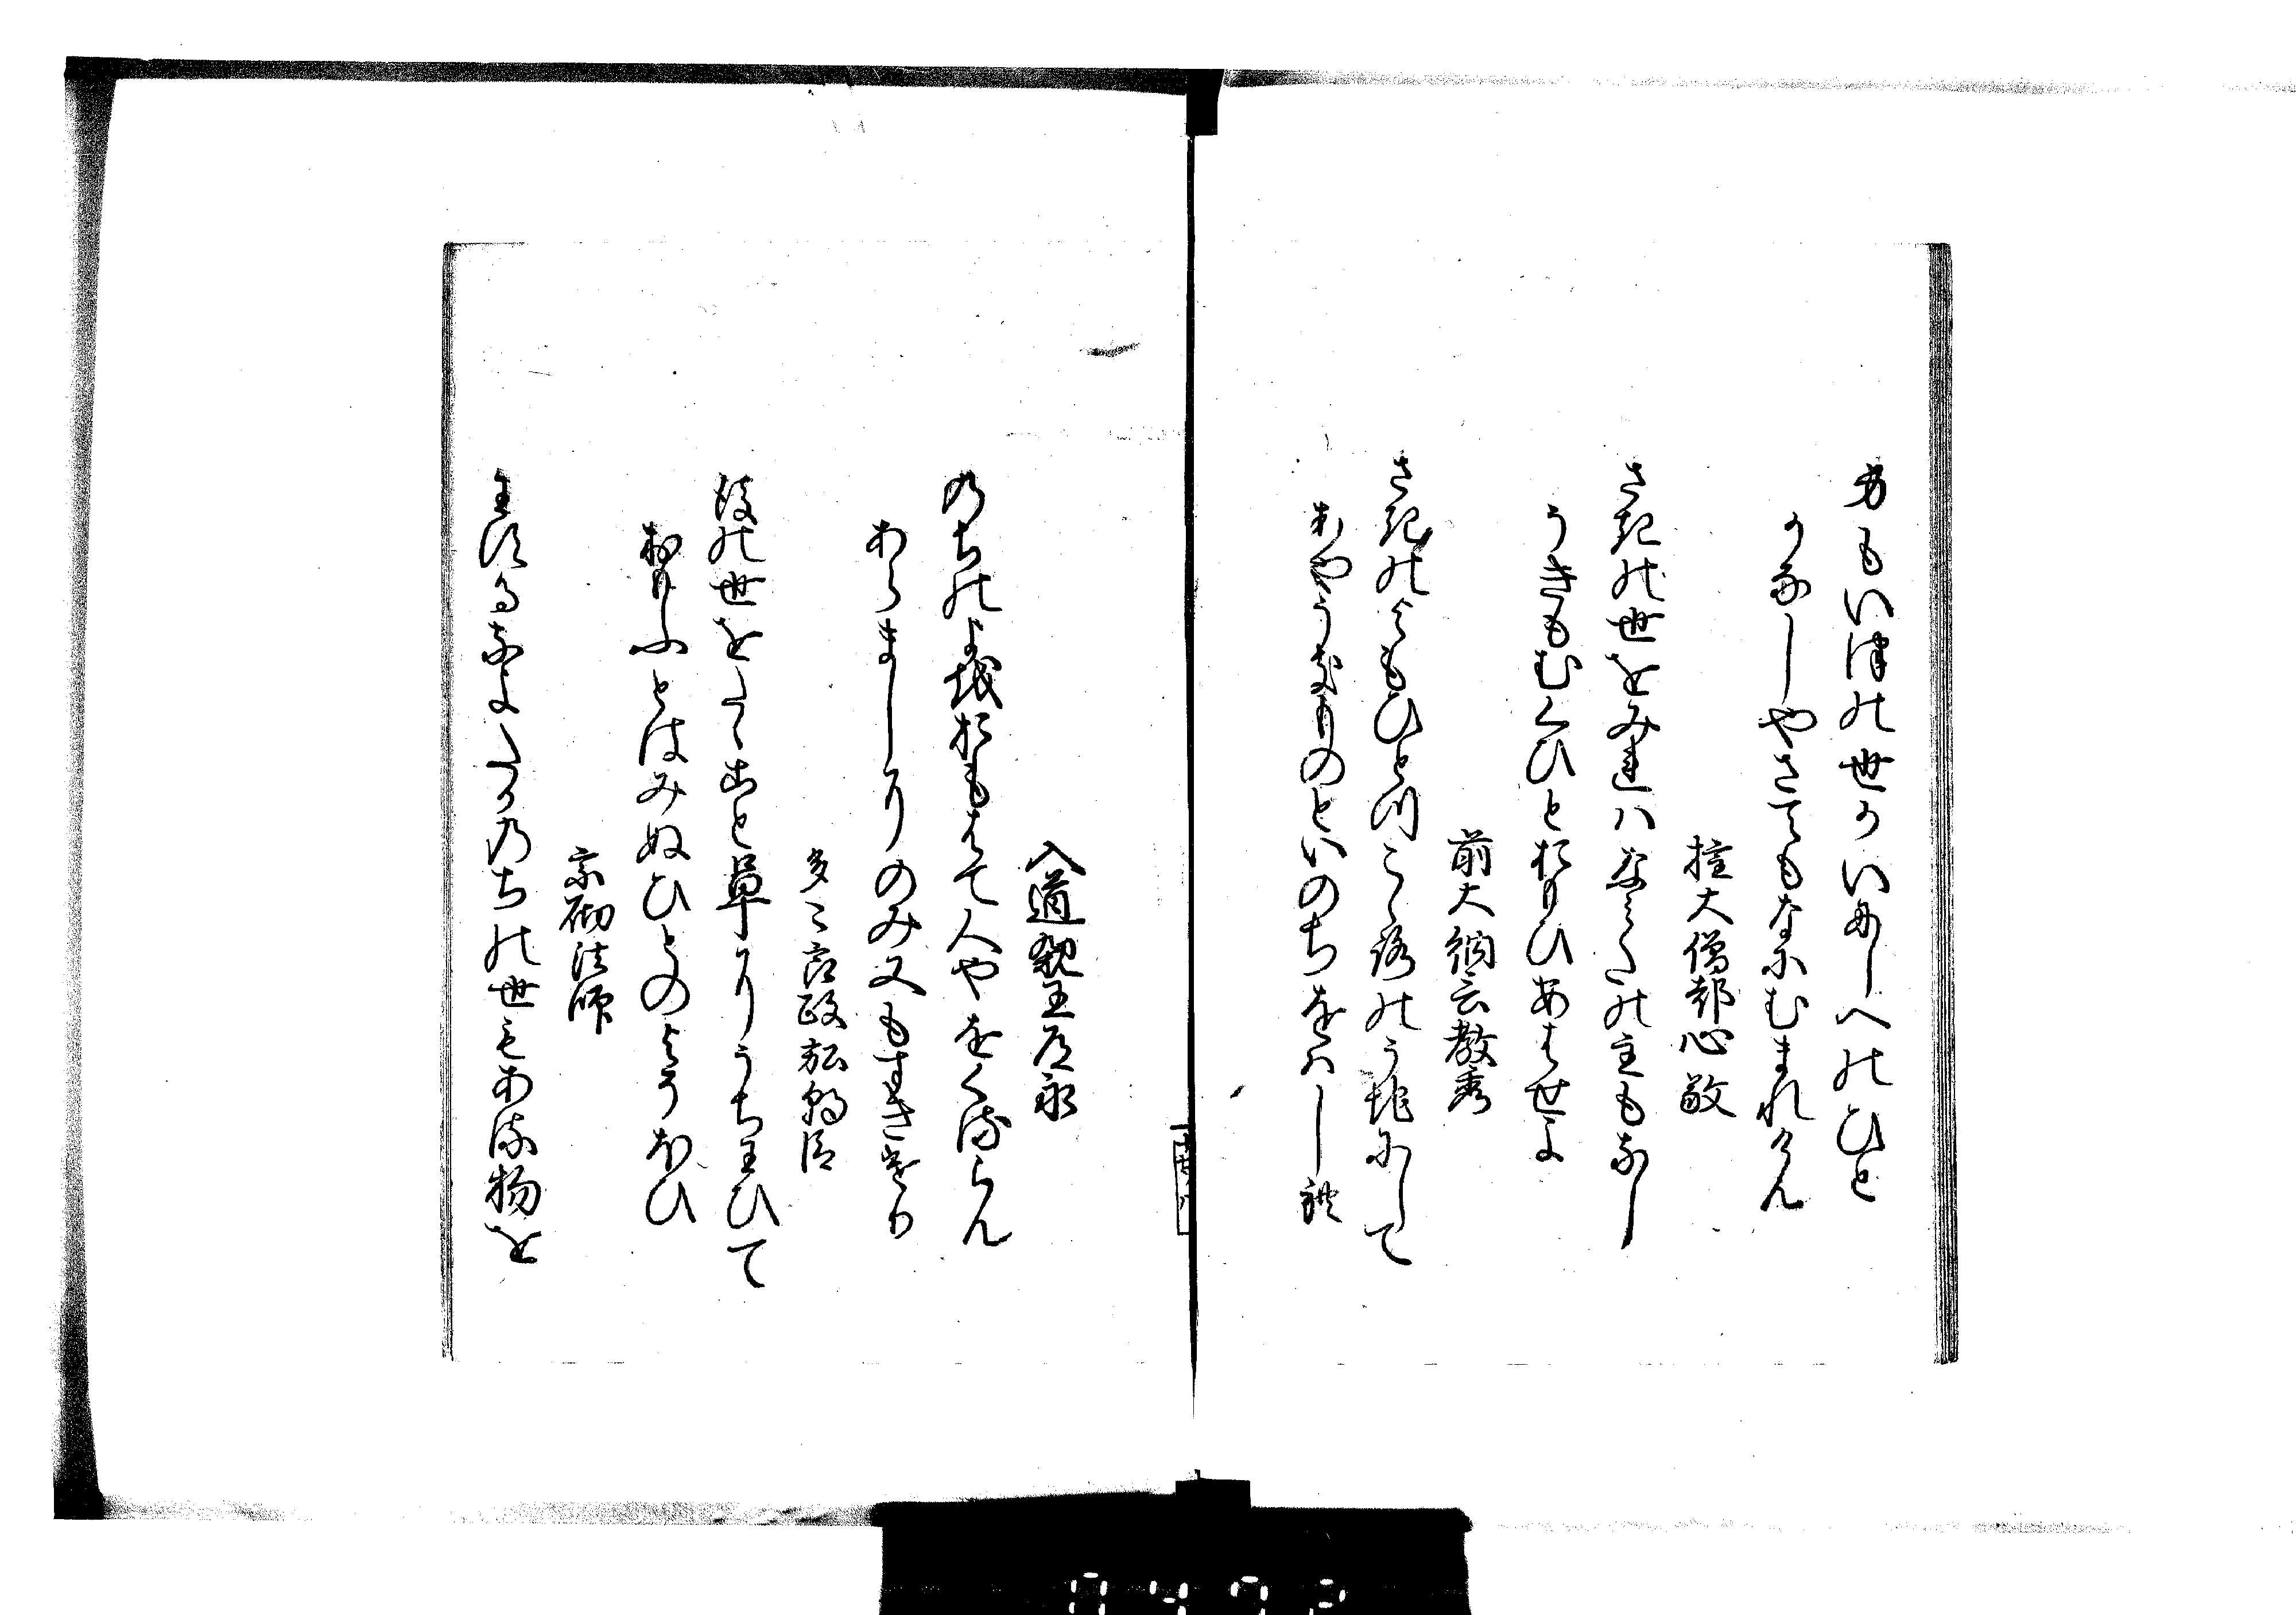 身もいつの世かいにしへのひと
かなしやさてもなにむまれけん
権大僧都心敬
さきの世をみれはなみたの玉もなし
うきもむくひとおもひあはせよ
前大納言教秀
さきのよもひとつこゝろのうちにして
あやうきものといのちをはしれ
入道親王尊永
のちのよをおもはて人やをくるらん
あらましかりのみ又もすきけり
多々良政弘朝臣
後の世をたゝことくさにうちいひて
おもふとはみぬひとのよそほひ
宗砌法師
わするなよたかのちの世もある物を